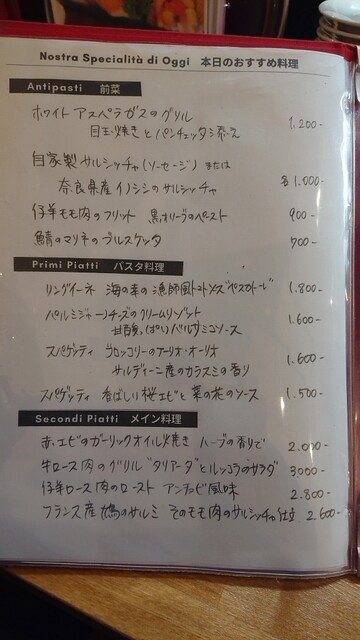 Nostra Specialità di Oggi 本日のおすすめ料理
Antipasti 前菜
ホワイトアスペラガスのグリル
目玉焼きとパンチェッタ添え 1,200-
自家製サルシッチャ(ソーセージ)または
奈良県産イノシシのサルシッチャ 各1.000-
仔羊モモ肉のフリット 黒オリーブのペースト 900-
鯖のマリネのブルスケッタ 700-
Primi Piatti パスタ料理
リングイーネ 海の幸の漁師風トマトソース"ペスカトーレ" 1.800-
パルミジャーノチーズのクリームリゾット 1.600-
甘酸っぱいバルサミコソース
スパゲッティ ブロッコリーのアーリオ・オーリオ
サルディーニ産のカラスミの香り 1.600-
スパゲッティ 香ばしい桜エビと菜の花のソース 1.500-
Secondi Piatti メイン料理
赤エビのガーリックオイル焼き ハーブの香りで 2.000-
牛ロース肉のグリル"タリアータ"とルッコラのサラダ 3000-
仔羊ロース肉のロースト アンチョビ風味 2.800-
フランス産鳩のサルミ そのモモ肉のサルシッチャ仕立 2.600-